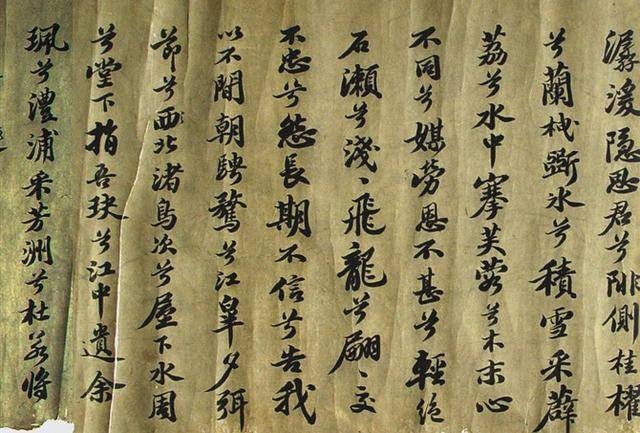 潺湲隱思君兮陫側桂櫂
兮蘭枻斲氷兮積雪采薜
荔兮水中搴芙蓉兮木末心
不同兮媒勞恩不甚兮輕絕
石瀨兮淺〻飛龍兮翩〻交
不忠兮怨長期不信兮告我
以不閒朝騁騖兮江皋夕弭
節兮西北渚鳥次兮屋下水周
兮堂下指吾玦兮江中遺余
珮兮澧浦采芳洲兮杜若將